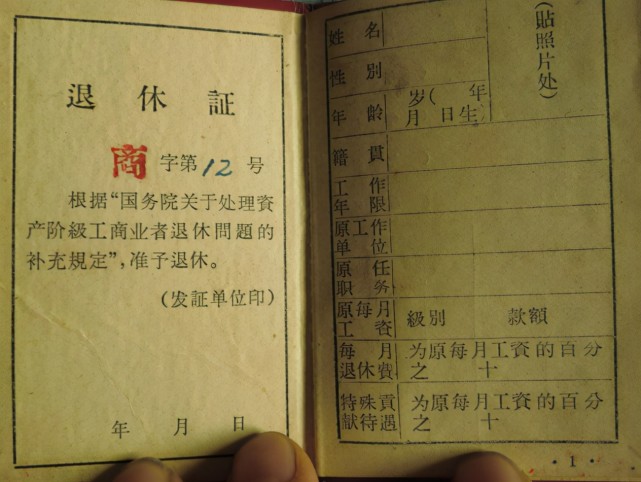 退休証
商字第12号
根据“国务院关于处理資
产阶級工商业者退休問題的
补充規定”，准予退休。
(发証单位印)
年 月 日
姓名
(貼照片处)
性別
年齡 岁( 年
月 日生)
籍貫
工作
年限
原工作
单位
原任
职务
原每月
工資 級別 款額
每月 为原每月工資的百分
退休費 之 十
特殊貢 为原每月工資的百分
献待遇 之 十
·1·